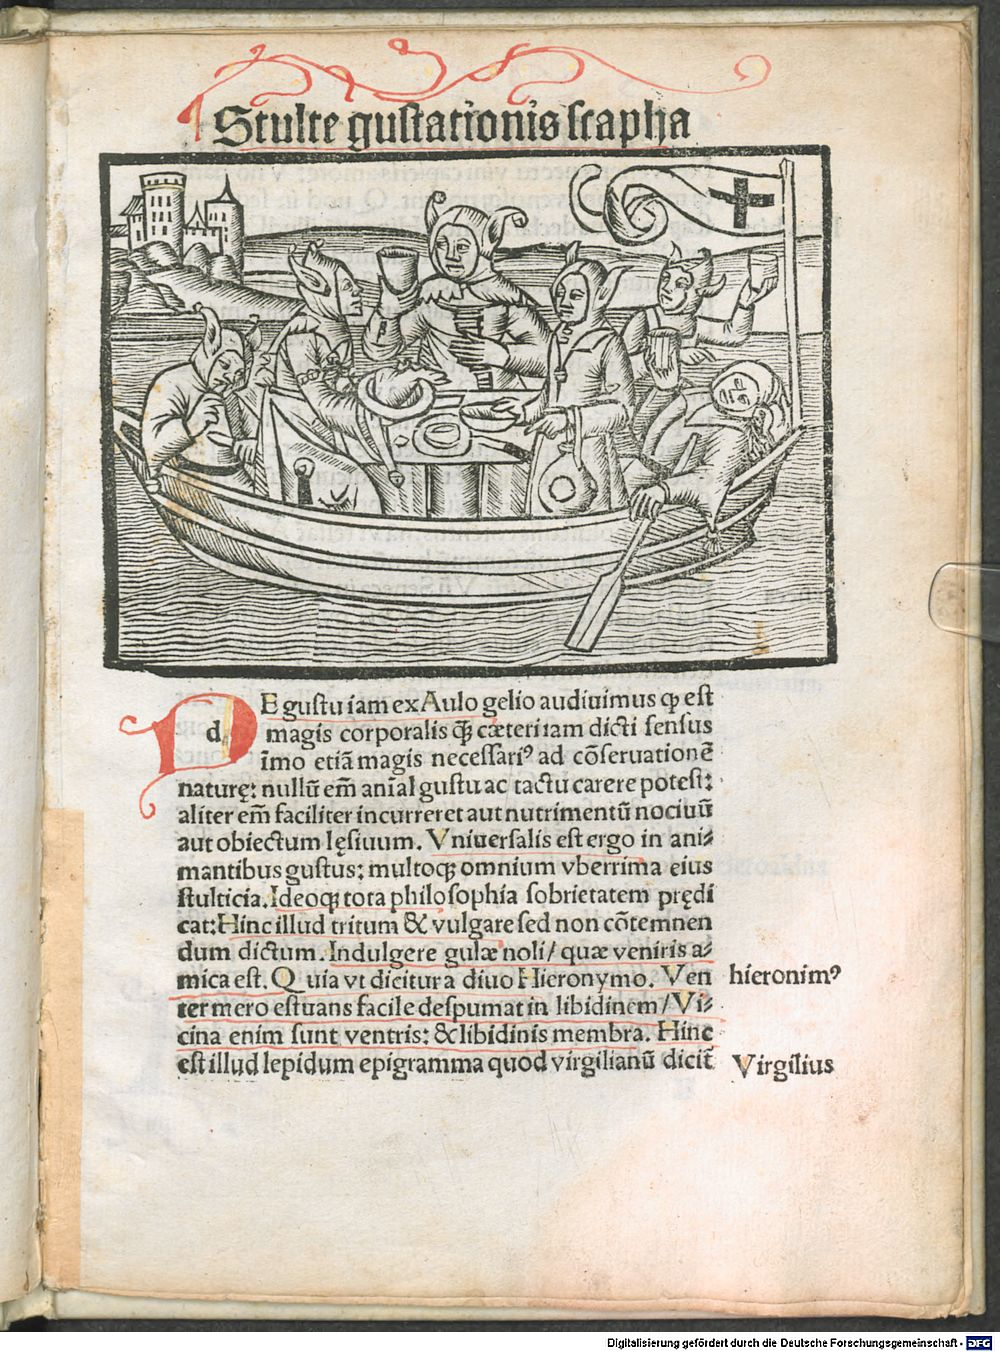 Stulte gustationis scapha
DE gustu iam ex Aulo gelio audiuimus ꝙ est
d
magis corporalis ꝗ̄ cæteri iam dicti sensus
īmo etiā magis necessariꝰ ad cōseruationē
naturę: nullū em̄ anīal gustu ac tactu carere potest:
aliter em̄ faciliter incurreret aut nutrimentū nociuū
aut obiectum lęsiuum. Vniuersalis est ergo in ani⸗
mantibus gustus: multoqꝫ omnium vberrima eius
stulticia. Ideoqꝫ tota philosophia sobrietatem prędi
cat: Hinc illud tritum & vulgare sed non cōtemnen
dum dictum. Indulgere gulæ noli/ quæ veniris a⸗
mica est. Quia vt dicitur a diuo Hieronymo. Ven
hieronimꝰ
ter mero estuans facile despumat in libidinem/ Vi⸗
cina enim sunt ventris: & libidinis membra. Hinc
est illud lepidum epigramma quod virgilianū dicit̄
Virgilius
Digitalisierung gefördert durch die Deutsche Forschungsgemeinschaft - DFG